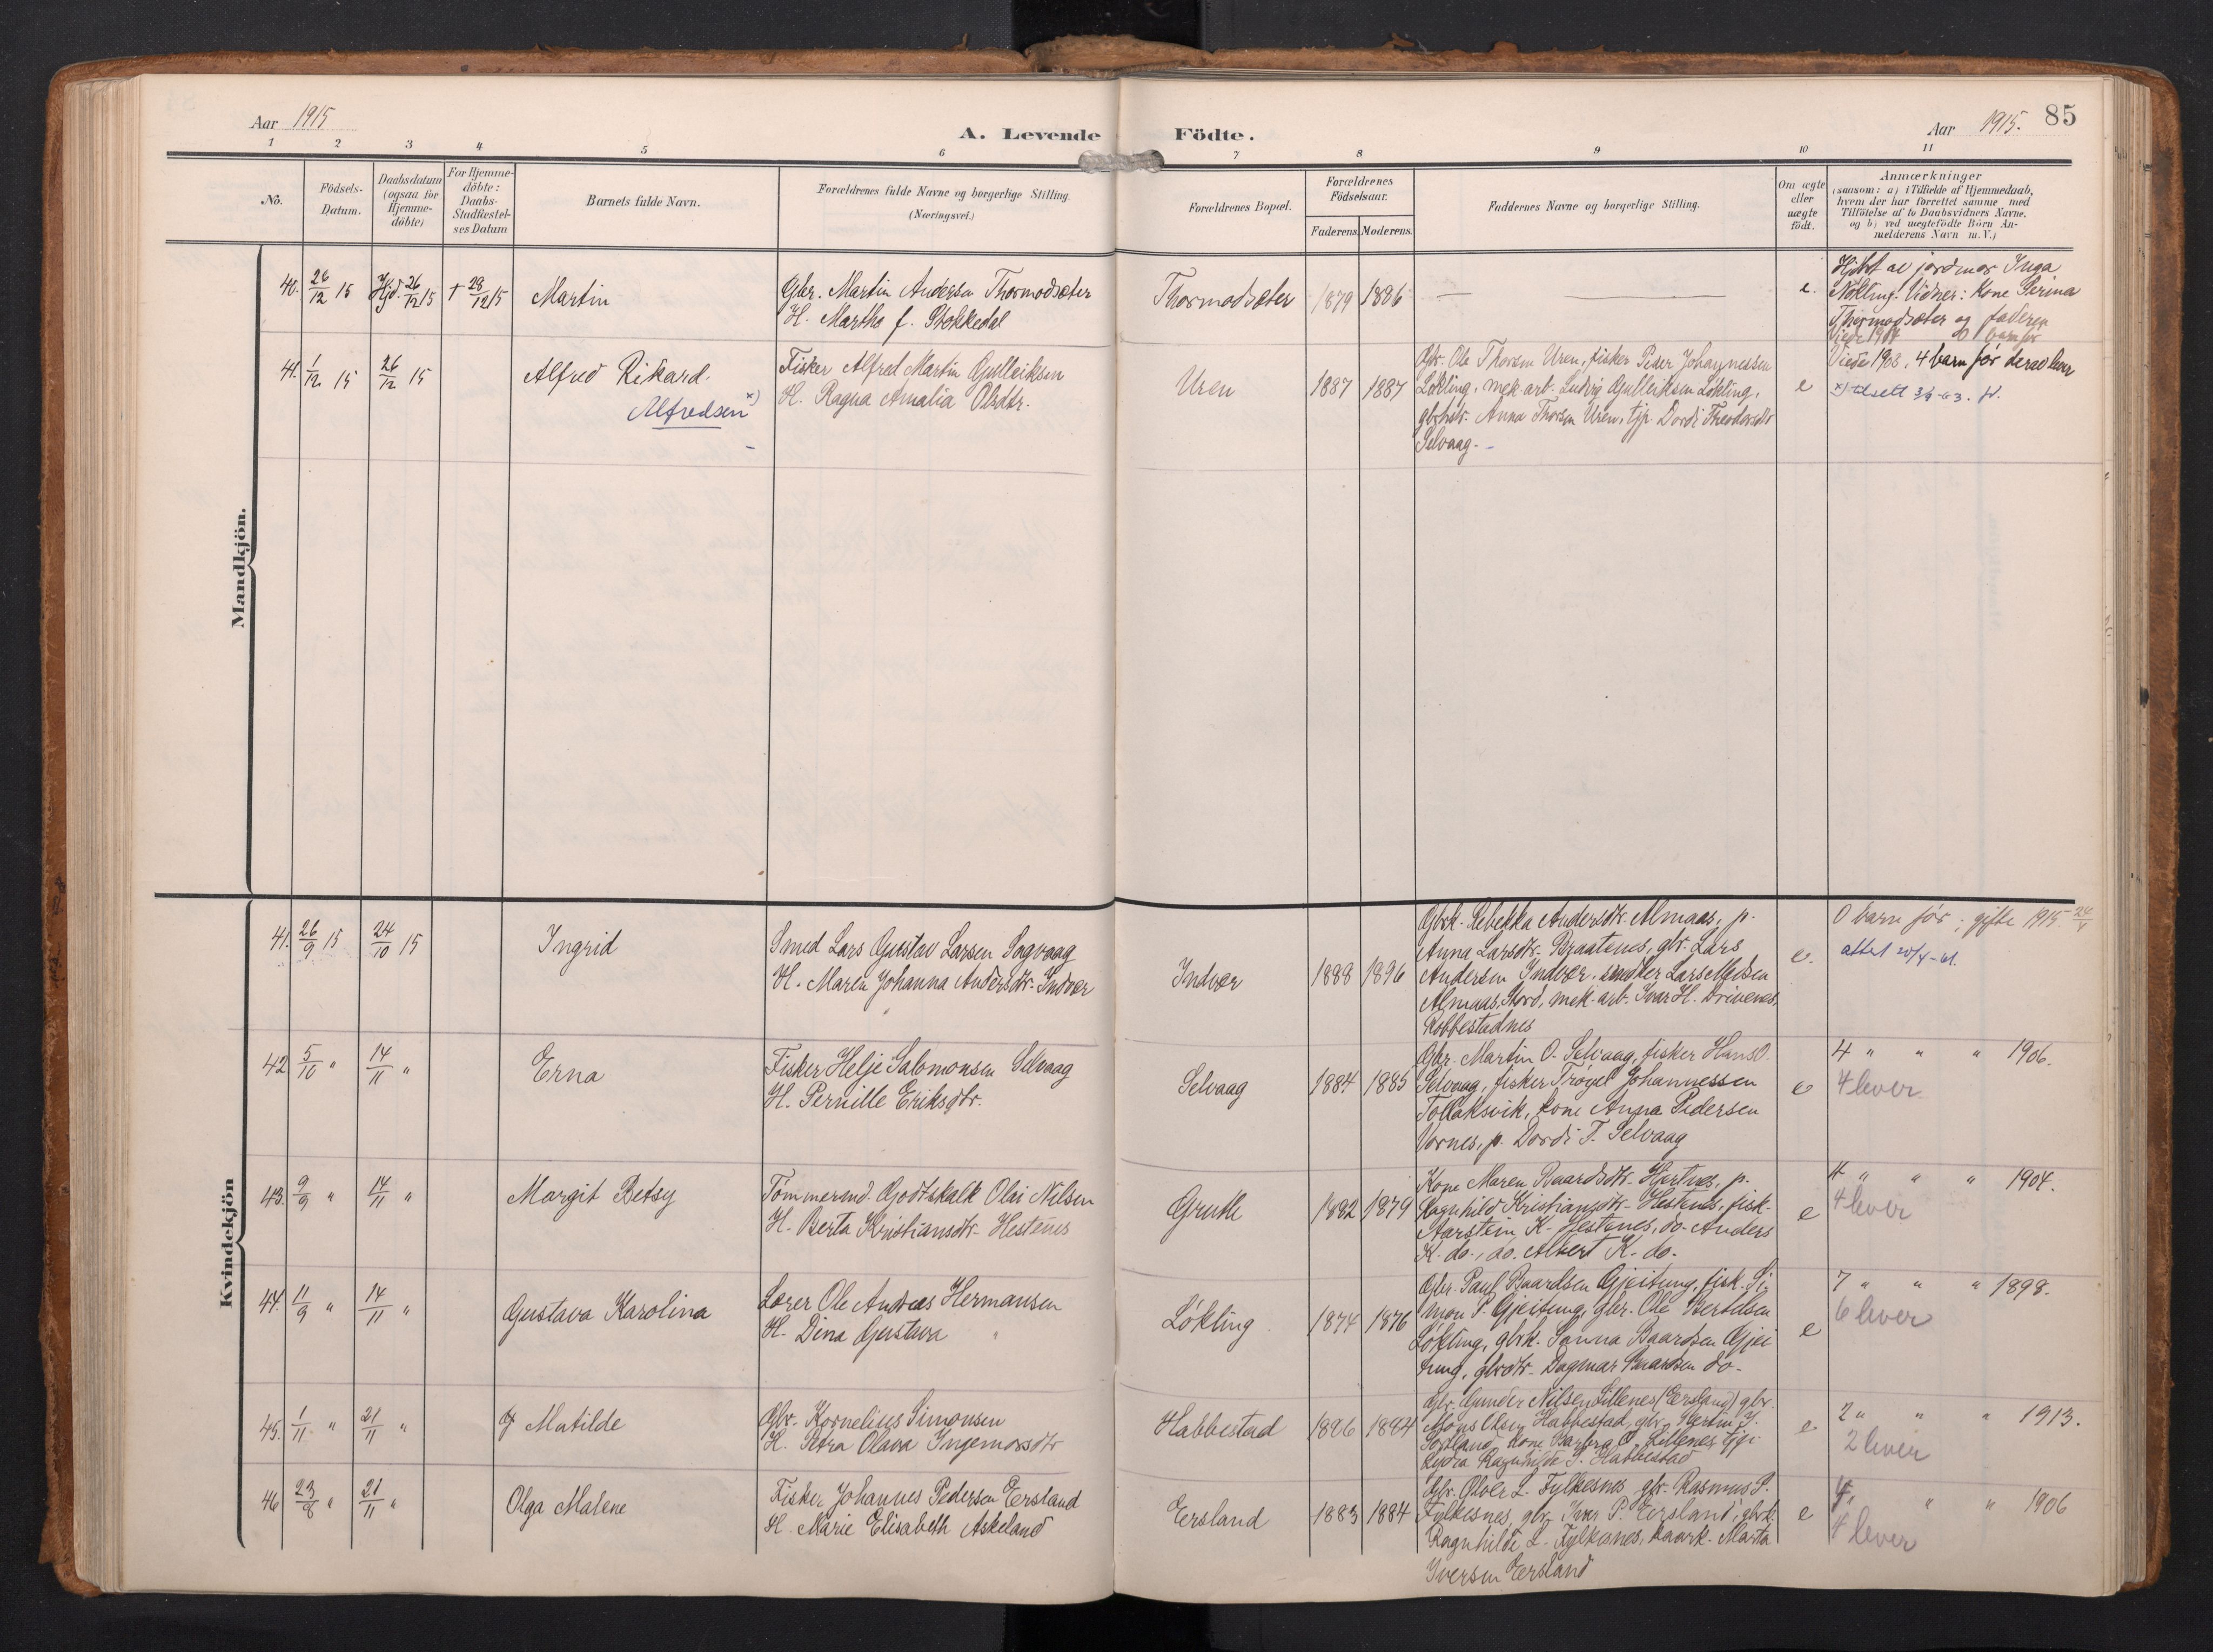 Aar 1915
A. Levende
Födte.
Aar 1915. 85
1 2 3 4 5 6 7 8 9 10 11
No.
Födsels-
Datum.
Daabsdatum
(ogsaa för
Hjemme-
döbte)
For Hjemme-
döbte:
Daabs-
Stadfæstel-
ses Datum
Barnets fulde Navn.
Forældrenes fulde Navne og borgerlige Stilling.
(Næringsvei.)
Forældrenes Bopæl.
Forældrenes
Födselsaar.
Faderens. Moderens.
Faddernes Navne og borgerlige Stilling.
Om ægte
eller
uægte
födt.
Anmærkninger
(saasom: a) i Tilfælde af Hjemmedaab,
hvem der har forrettet samme, med
Tilföielse af to Daabsvidners Navne.
og b) ved uægtefödte Börn An-
melderens Navn m. V.)
Mandkjön.
40. 26/12 15 Hjd. 26/12 15 † 28/12 15 Martin
Gbr. Martin Andersen Thormodsæter
H. Martha f. Stokkedal
Thormodsæter 1879 1886 — — e.
Hjdbt av jordmor Inga
Nøkling. Vidner: Kone Serina
Thormodsæter og faderen
41. 1/12 15 26/12 15 Alfred Rikard.
Alfredsen x)
Fisker Alfred Martin Gulleiksen
H. Ragna Amalia Olsdtr.
Uren 1887 1887
Gbr. Ole Thorsen Uren, fisker Peder Johannessen
Løkling, mek. arb. Ludvig Gulleiksen Løkling,
Anna Thorsen Uren, tjp. Dordi
Selvaag.
e
Viede 1908, 4 barn før derav lever
x) tilsett
Kvindekjön
41. 26/9 15 24/10 15 Ingrid
Smed Lars Gustav Larsen Sagvaag
H. Maren Johanna Andersdtr. Indvær
Indvær 1888 1896
Gbrk. Rebekka Andersdtr. Almaas, p.
Anna Larsdtr. Braatenes, gbr. Lars
Andersen Indvær, Lars
Almaas, Stord, mek. arb. Ivar H. Drivenes
Kobbestadnes
e.
0 barn før; gifte 1915 24/4
attst 20/4-61.
42 5/10 " 14/11 " Erna
Fisker Helje Salomonsen Selvaag
H. Pernille Eriksdtr.
Selvaag 1884 1885
Gbr. Martin O. Selvaag, fisker Hans O.
Selvaag, fisker Trøyel Johannessen
Tollaksvik, kone Anna Pedersen
Vornes, p. Dordi T. Selvaag
e
4 " " " 1906.
4 lever
43. 9/9 " 14/11 " Margit Betsy
Tømmermd. Godtskalk Olai Nilsen
H. Berta Kristiansdtr. Hestenes
Grutle 1882 1879
Kone Maren Baardsdtr. Hjertnes, p.
Ragnhild Kristiansdtr. Hestenes, fisk.
Aarstein K. Hestenes, do. Anders
K. do., do. Albert K. do.
e
4 " " " 1904.
4 lever
44. 11/9 " 14/11 " Gustava Karolina
Lærer Ole Andreas Hermansen
H. Dina Gustava "
Løkling 1874 1876
Gbr. Paul Baardsen Gjeitung, fisk. Si-
mon P. Gjeitung, gbr. Ole Bertelsen
Løkling, gbrk. Sanna Baardsen Gjei-
tung, gbrdtr. Dagmar Baardsen do.
e
7 " " " 1898.
6 lever
45. 1/11 " 21/11 " Matilde
Gbr. Kornelius Simonsen
H. Petra Olava Ingemarsdtr
Habbestad 1896 1894
Gbr. Gunder Nilsen Lillenes (Eersland) gbr.
Mons Olsen Habbestad, gbr.
kone Barbra O. Lillenes, tjp.
Lydia Ragnhilde S. Habbestad
e
2 " " " 1913.
2 lever
46 23/8 " 21/11 " Olga Malene
Fisker Johannes Pedersen Eersland
H. Marie Elisabeth Askeland
Eersland 1883 1884
Gbr. Olver L. Fylkesnes, gbr. Rasmus P.
Fylkesnes, gbr. Iver P. Eersland, gbrk.
Ragnhilde L. Fylkesnes, Marta
Iversen Eersland
e
4 " " " 1906
4 lever